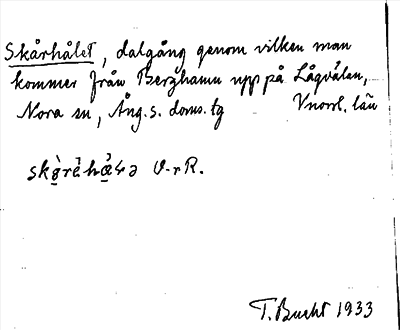 Skårhålet, dalgång genom vilken man
kommer från Berghamn upp på Lågvålen,
Nora sn, Ång.s. doms. tg Vnorrl. län
V-rR.
T. Bucht 1933